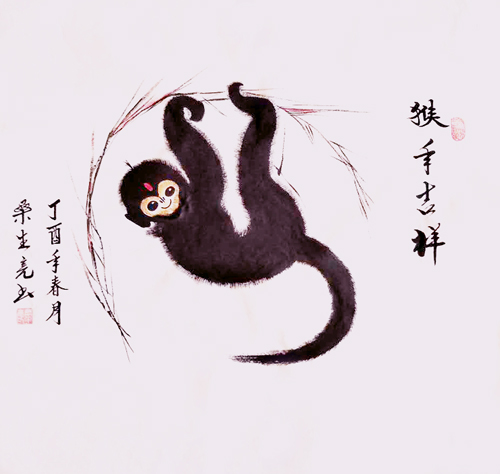 猴年吉祥
丁酉年春月
桑生亮书